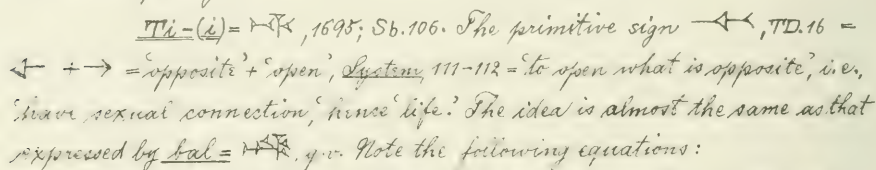 Ti-(i) = 𒋾, 1695; Sb. 106. The primitive sign , TD. 16 =
+ = 'opposite' + 'open', System, 111-112 = 'to open what is opposite', i.e.,
'have sexual connection,' hence 'life.' The idea is almost the same as that
expressed by bal = 𒁄, q.v. Note the following equations: